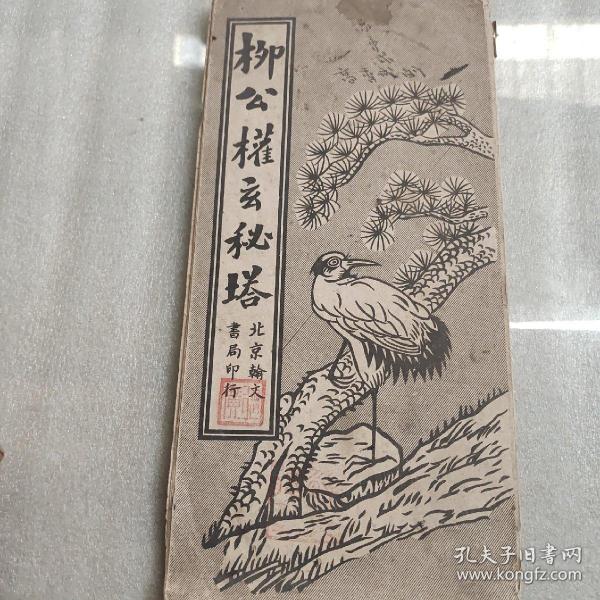 柳公權玄秘塔
北京翰文
書局印行
孔夫子旧書网
www.kongfz.com